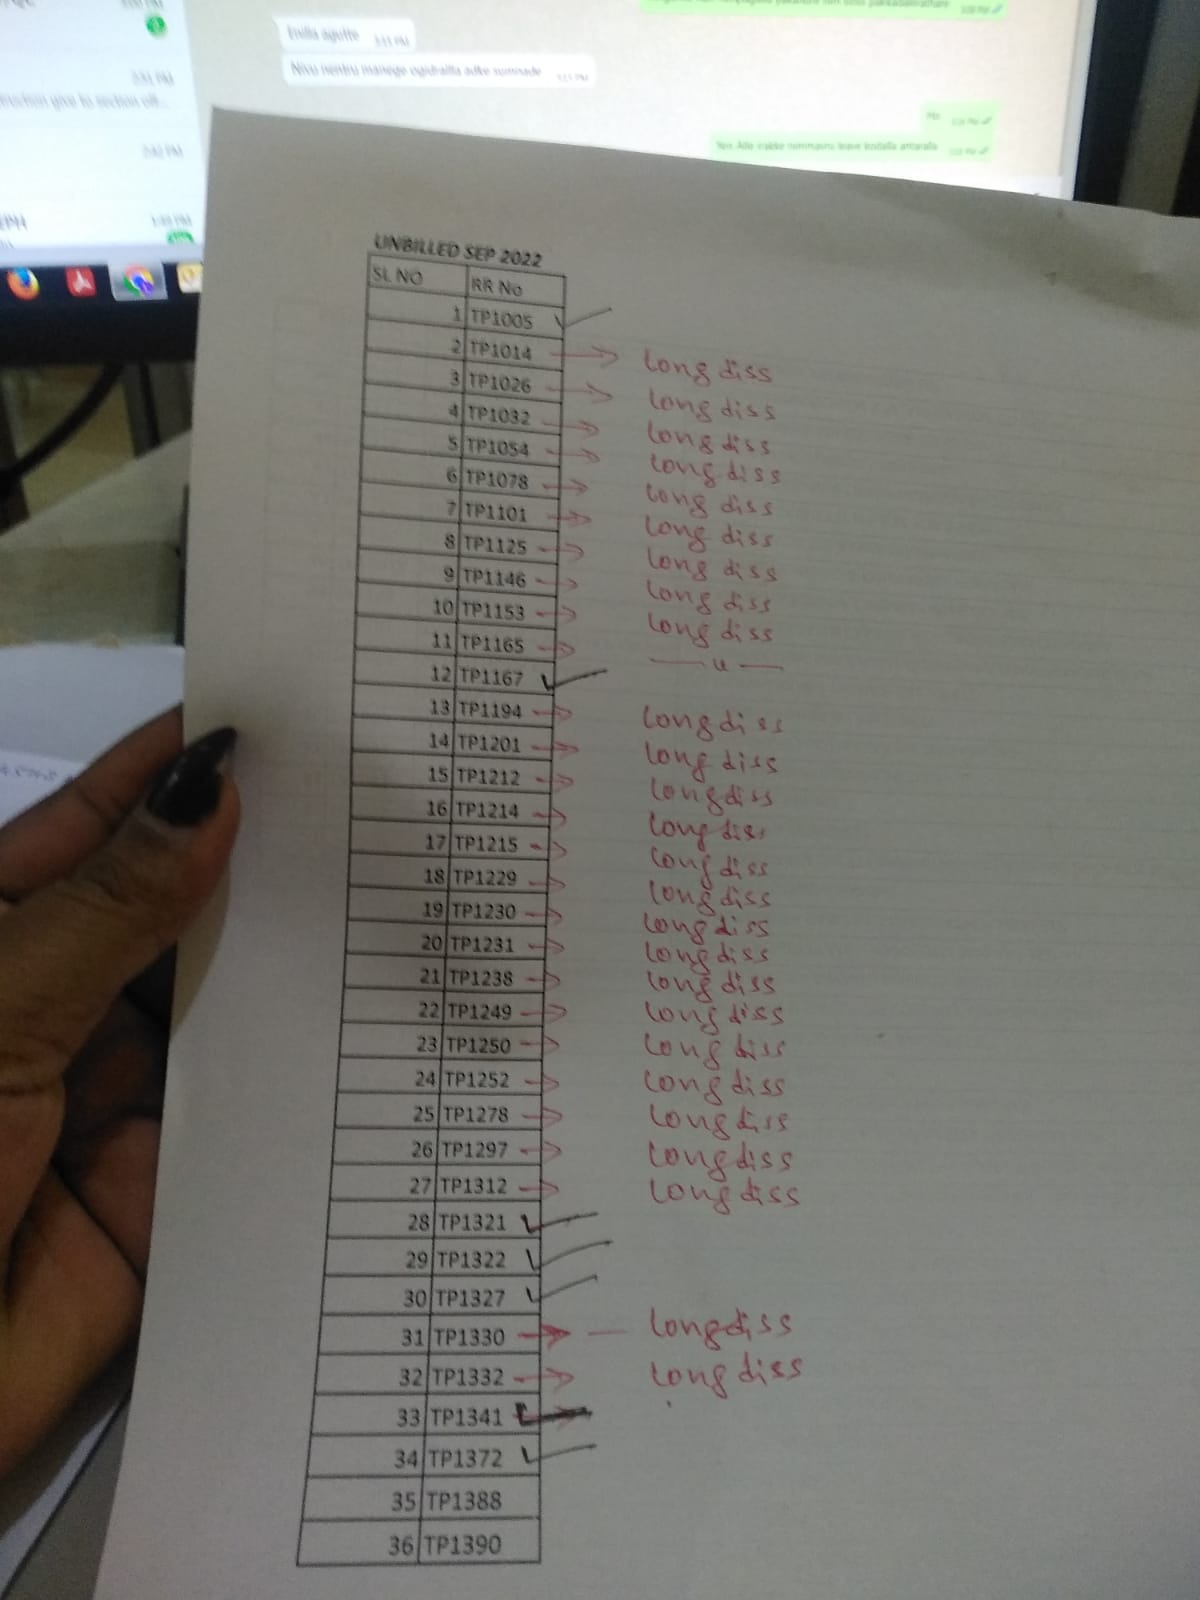 2:51 PM
2:42 PM
1:49 PM
Enilla agutte
Nivu nentru manege ogidrallla adke sumnade
UNBILLED SEP 2022
SL NO RR No
1 TP1005
2 TP1014 Long diss
3 TP1026 Long diss
4 TP1032 Long diss
5 TP1054 Long diss
6 TP1078 Long diss
7 TP1101 Long diss
8 TP1125 Long diss
9 TP1146 Long diss
10 TP1153 Long diss
11 TP1165 — " —
12 TP1167
13 TP1194 Long diss
14 TP1201 Long diss
15 TP1212 Long diss
16 TP1214 Long diss
17 TP1215 Long diss
18 TP1229 Long diss
19 TP1230 Long diss
20 TP1231 Long diss
21 TP1238 Long diss
22 TP1249 Long diss
23 TP1250 Long diss
24 TP1252 Long diss
25 TP1278 Long diss
26 TP1297 Long diss
27 TP1312 Long diss
28 TP1321
29 TP1322
30 TP1327
31 TP1330 — Long diss
32 TP1332 Long diss
33 TP1341
34 TP1372
35 TP1388
36 TP1390